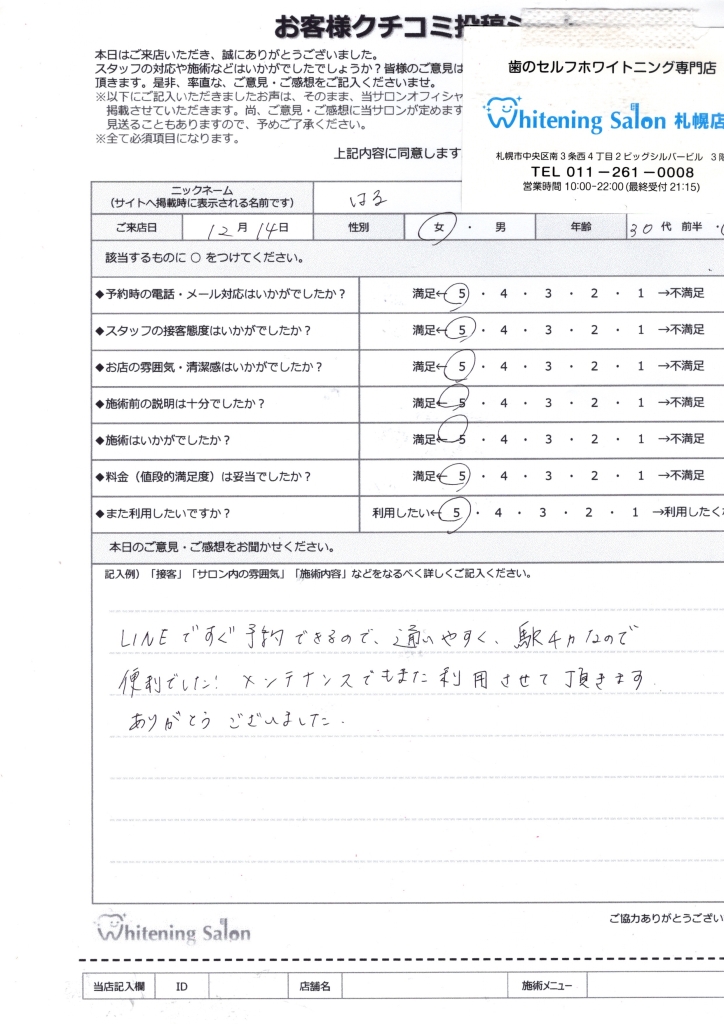 お客様クチコミ投稿
本日はご来店いただき、誠にありがとうございました。
スタッフの対応や施術などはいかがでしたでしょうか？皆様のご意見は
頂きます。是非、率直な、ご意見・ご感想をご記入くださいませ。
※以下にご記入いただきましたお声は、そのまま、当サロンオフィシャ
掲載させていただきます。尚、ご意見・ご感想に当サロンが定めます
見送ることもありますので、予めご了承ください。
※全て必須項目になります。
上記内容に同意します
歯のセルフホワイトニング専門店
Whitening Salon 札幌店
札幌市中央区南3条西4丁目2ビッグシルバービル 3階
TEL 011-261-0008
営業時間 10:00-22:00(最終受付 21:15)
ニックネーム
（サイトへ掲載時に表示される名前です）
はる
ご来店日 12月14日 性別 女 ・ 男 年齢 30代 前半 ・
該当するものに○をつけてください。
◆予約時の電話・メール対応はいかがでしたか？ 満足← 5 ・ 4 ・ 3 ・ 2 ・ 1 →不満足
◆スタッフの接客態度はいかがでしたか？ 満足← 5 ・ 4 ・ 3 ・ 2 ・ 1 →不満足
◆お店の雰囲気・清潔感はいかがでしたか？ 満足← 5 ・ 4 ・ 3 ・ 2 ・ 1 →不満足
◆施術前の説明は十分でしたか？ 満足← 5 ・ 4 ・ 3 ・ 2 ・ 1 →不満足
◆施術はいかがでしたか？ 満足← 5 ・ 4 ・ 3 ・ 2 ・ 1 →不満足
◆料金（値段的満足度）は妥当でしたか？ 満足← 5 ・ 4 ・ 3 ・ 2 ・ 1 →不満足
◆また利用したいですか？ 利用したい← 5 ・ 4 ・ 3 ・ 2 ・ 1 →利用したく
本日のご意見・ご感想をお聞かせください。
記入例）「接客」「サロン内の雰囲気」「施術内容」などをなるべく詳しくご記入ください。
LINEですぐ予約できるので、通いやすく、駅チカなので
便利でした！メンテナンスでもまた利用させて頂きます.
ありがとうございました.
ご協力ありがとうござい
Whitening Salon
当店記入欄 ID 店舗名 施術メニュー